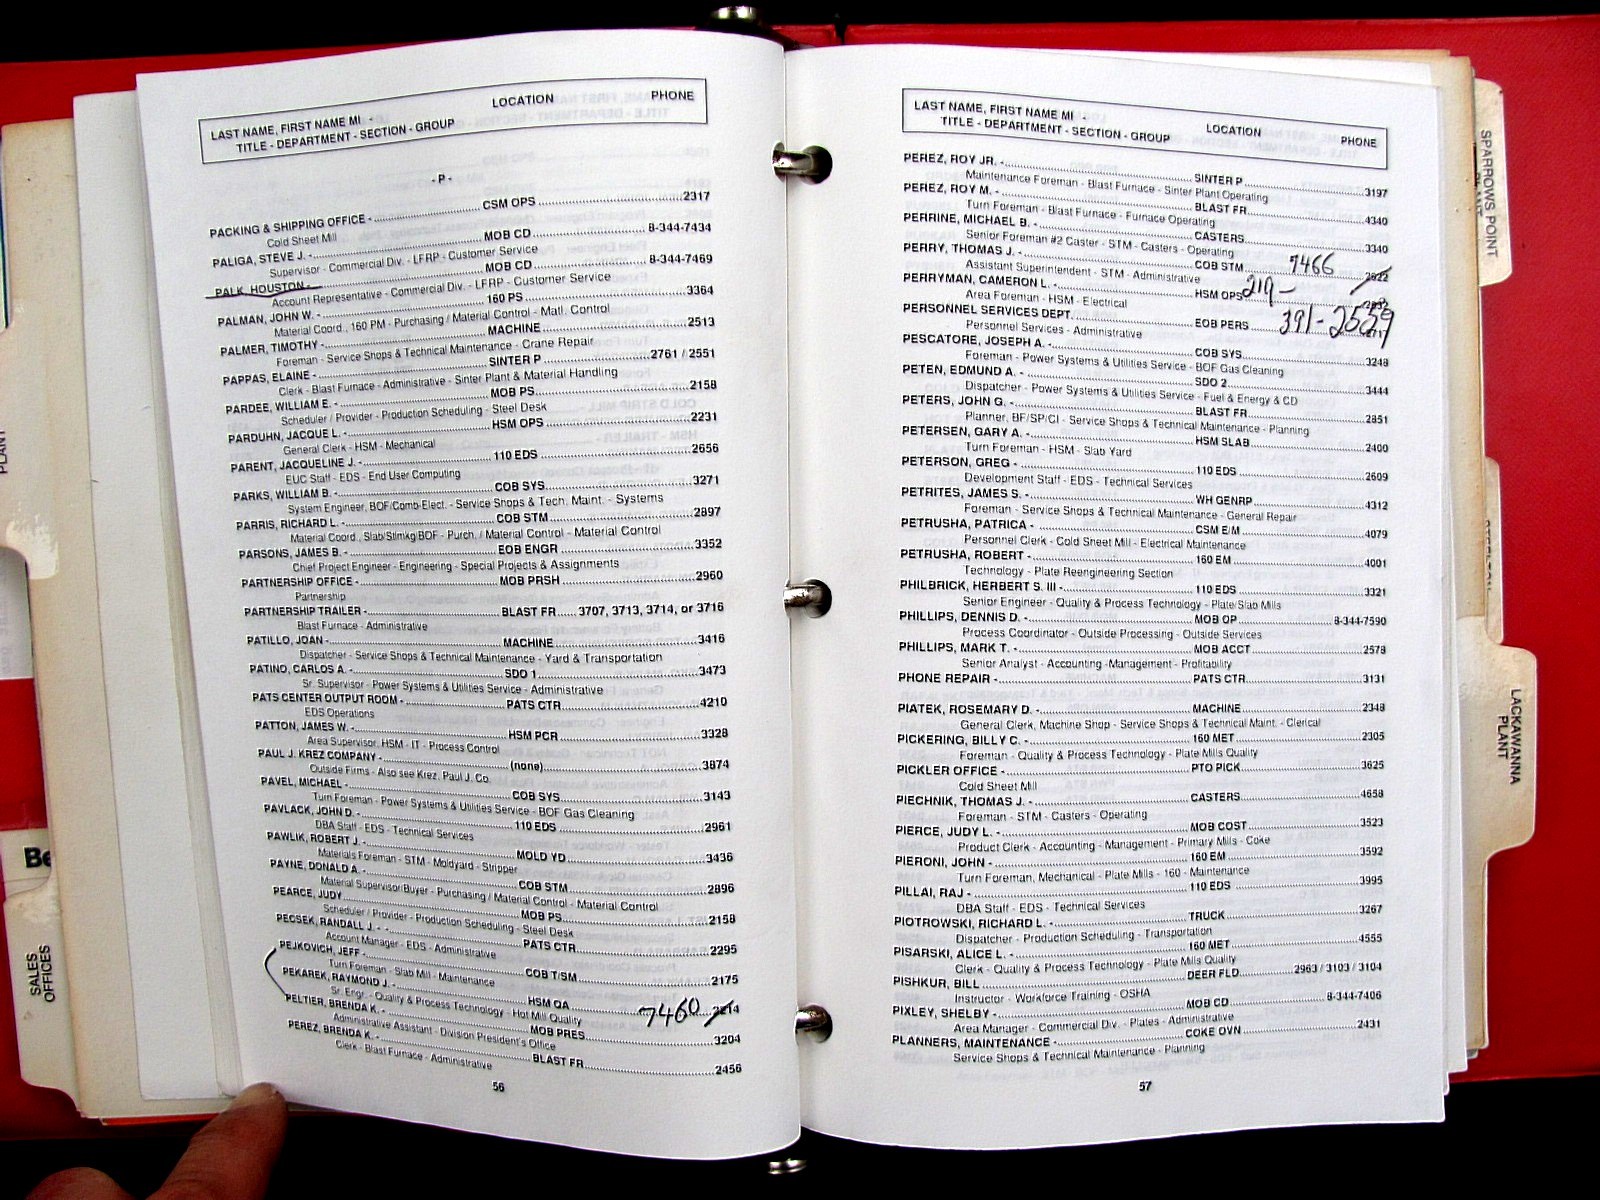 LAST NAME, FIRST NAME MI - LOCATION PHONE
TITLE - DEPARTMENT - SECTION - GROUP
- P -
PACKING & SHIPPING OFFICE - CSM OPS 2317
Cold Sheet Mill
PALIGA, STEVE J. - MOB CD 8-344-7434
Supervisor - Commercial Div. - LFRP - Customer Service
PALK, HOUSTON - MOB CD 8-344-7469
Account Representative - Commercial Div. - LFRP - Customer Service
PALMAN, JOHN W. - 160 PS 3364
Material Coord., 160 PM - Purchasing / Material Control - Matl. Control
PALMER, TIMOTHY - MACHINE 2513
Foreman - Service Shops & Technical Maintenance - Crane Repair
PAPPAS, ELAINE - SINTER P 2761 / 2551
Clerk - Blast Furnace - Administrative - Sinter Plant & Material Handling
PARDEE, WILLIAM E. - MOB PS 2158
Scheduler / Provider - Production Scheduling - Steel Desk
PARDUHN, JACQUE L. - HSM OPS 2231
General Clerk - HSM - Mechanical
PARENT, JACQUELINE J. - 110 EDS 2656
EUC Staff - EDS - End User Computing
PARKS, WILLIAM B. - COB SYS 3271
System Engineer, BOF/Comb-Elect. - Service Shops & Tech. Maint. - Systems
PARRIS, RICHARD L. - COB STM 2897
Material Coord., Slab/Stlmkg/BOF - Purch. / Material Control - Material Control
PARSONS, JAMES B. - EOB ENGR 3352
Chief Project Engineer - Engineering - Special Projects & Assignments
PARTNERSHIP OFFICE - MOB PRSH 2960
Partnership
PARTNERSHIP TRAILER - BLAST FR 3707, 3713, 3714, or 3716
Blast Furnace - Administrative
PATILLO, JOAN - MACHINE 3416
Dispatcher - Service Shops & Technical Maintenance - Yard & Transportation
PATINO, CARLOS A. - SDO 1 3473
Sr. Supervisor - Power Systems & Utilities Service - Administrative
PATS CENTER OUTPUT ROOM - PATS CTR 4210
EDS Operations
PATTON, JAMES W. - HSM PCR 3328
Area Supervisor, HSM - IT - Process Control
PAUL J. KREZ COMPANY - (none) 3874
Outside Firms - Also see Krez, Paul J. Co.
PAVEL, MICHAEL - COB SYS 3143
Turn Foreman - Power Systems & Utilities Service - BOF Gas Cleaning
PAVLACK, JOHN D. - 110 EDS 2961
DBA Staff - EDS - Technical Services
PAWLIK, ROBERT J. - MOLD YD 3436
Materials Foreman - STM - Moldyard - Stripper
PAYNE, DONALD A. - COB STM 2896
Material Supervisor/Buyer - Purchasing / Material Control - Material Control
PEARCE, JUDY MOB PS 2158
Scheduler / Provider - Production Scheduling - Steel Desk
PECSEK, RANDALL J. - - PATS CTR 2295
Account Manager - EDS - Administrative
PEJKOVICH, JEFF - COB T/SM 2175
Turn Foreman - Slab Mill - Maintenance
PEKAREK, RAYMOND J. - HSM QA 7460 2214
Sr. Engr. - Quality & Process Technology - Hot Mill Quality
PELTIER, BRENDA K. - MOB PRES 3204
Administrative Assistant - Division President's Office
PEREZ, BRENDA K. - BLAST FR 2456
Clerk - Blast Furnace - Administrative
56
LAST NAME, FIRST NAME MI - LOCATION PHONE
TITLE - DEPARTMENT - SECTION - GROUP
PEREZ, ROY JR. - SINTER P 3197
Maintenance Foreman - Blast Furnace - Sinter Plant Operating
PEREZ, ROY M. - BLAST FR 4340
Turn Foreman - Blast Furnace - Furnace Operating
PERRINE, MICHAEL B. - CASTERS 3340
Senior Foreman #2 Caster - STM - Casters - Operating
PERRY, THOMAS J. - COB STM 7466 2922
Assistant Superintendent - STM - Administrative
PERRYMAN, CAMERON L. - HSM OPS 219-
Area Foreman - HSM - Electrical
PERSONNEL SERVICES DEPT. EOB PERS 391-2559
Personnel Services - Administrative
PESCATORE, JOSEPH A. - COB SYS 3248
Foreman - Power Systems & Utilities Service - BOF Gas Cleaning
PETEN, EDMUND A. - SDO 2 3444
Dispatcher - Power Systems & Utilities Service - Fuel & Energy & CD
PETERS, JOHN G. - BLAST FR 2851
Planner, BF/SP/CI - Service Shops & Technical Maintenance - Planning
PETERSEN, GARY A. - HSM SLAB 2400
Turn Foreman - HSM - Slab Yard
PETERSON, GREG - 110 EDS 2609
Development Staff - EDS - Technical Services
PETRITES, JAMES S. - WH GENRP 4312
Foreman - Service Shops & Technical Maintenance - General Repair
PETRUSHA, PATRICA - CSM E/M 4079
Personnel Clerk - Cold Sheet Mill - Electrical Maintenance
PETRUSHA, ROBERT - 160 EM 4001
Technology - Plate Reengineering Section
PHILBRICK, HERBERT S. III - 110 EDS 3321
Senior Engineer - Quality & Process Technology - Plate/Slab Mills
PHILLIPS, DENNIS D. - MOB OP 8-344-7590
Process Coordinator - Outside Processing - Outside Services
PHILLIPS, MARK T. - MOB ACCT 2578
Senior Analyst - Accounting -Management - Profitability
PHONE REPAIR - PATS CTR 3131
PIATEK, ROSEMARY D. - MACHINE 2348
General Clerk, Machine Shop - Service Shops & Technical Maint. - Clerical
PICKERING, BILLY C. - 160 MET 2305
Foreman - Quality & Process Technology - Plate Mills Quality
PICKLER OFFICE - PTO PICK 3625
Cold Sheet Mill
PIECHNIK, THOMAS J. - CASTERS 4658
Foreman - STM - Casters - Operating
PIERCE, JUDY L. - MOB COST 3523
Product Clerk - Accounting - Management - Primary Mills - Coke
PIERONI, JOHN - 160 EM 3592
Turn Foreman, Mechanical - Plate Mills - 160 - Maintenance
PILLAI, RAJ - 110 EDS 3995
DBA Staff - EDS - Technical Services
PIOTROWSKI, RICHARD L. - TRUCK 3267
Dispatcher - Production Scheduling - Transportation
PISARSKI, ALICE L. - 160 MET 4555
Clerk - Quality & Process Technology - Plate Mills Quality
PISHKUR, BILL DEER FLD 2963 / 3103 / 3104
Instructor - Workforce Training - OSHA
PIXLEY, SHELBY - MOB CD 8-344-7406
Area Manager - Commercial Div. - Plates - Administrative
PLANNERS, MAINTENANCE - COKE OVN 2431
Service Shops & Technical Maintenance - Planning
57
SPARROWS POINT
PLANT
LACKAWANNA
PLANT
PLANT
Be
SALES
OFFICES